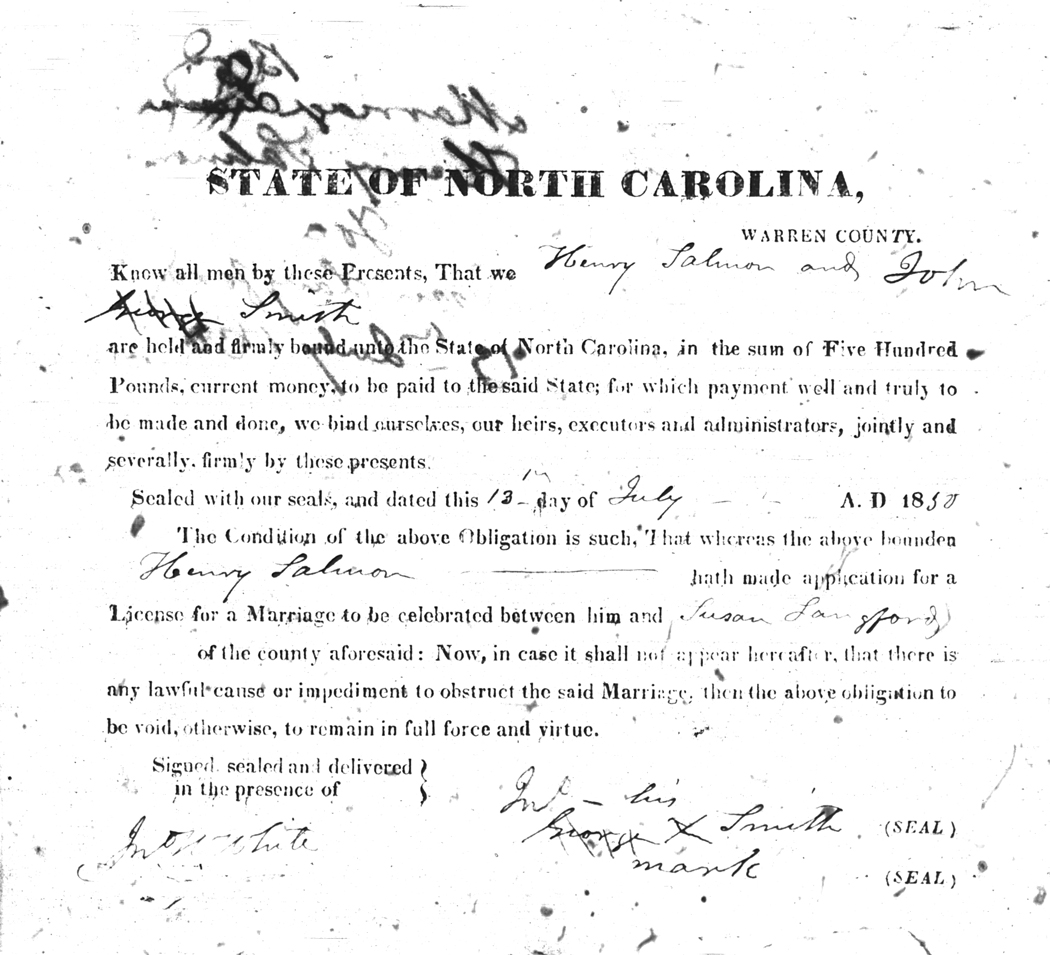 STATE OF NORTH CAROLINA,
WARREN COUNTY.
Know all men by these Presents, That we Henry Salmon and John
George Smith
are held and firmly bound unto the State of North Carolina, in the sum of Five Hundred
Pounds, current money, to be paid to the said State; for which payment well and truly to
be made and done, we bind ourselves, our heirs, executors and administrators, jointly and
severally, firmly by these presents.
Sealed with our seals, and dated this 13th day of July A. D 1850
The Condition of the above Obligation is such, That whereas the above bounden
Henry Salmon hath made application for a
License for a Marriage to be celebrated between him and Susan Langford
of the county aforesaid: Now, in case it shall not appear hereafter, that there is
any lawful cause or impediment to obstruct the said Marriage, then the above obligation to
be void, otherwise, to remain in full force and virtue.
Signed, sealed and delivered
in the presence of
Jno his
George X Smith (SEAL)
mark
Jno W White
(SEAL)